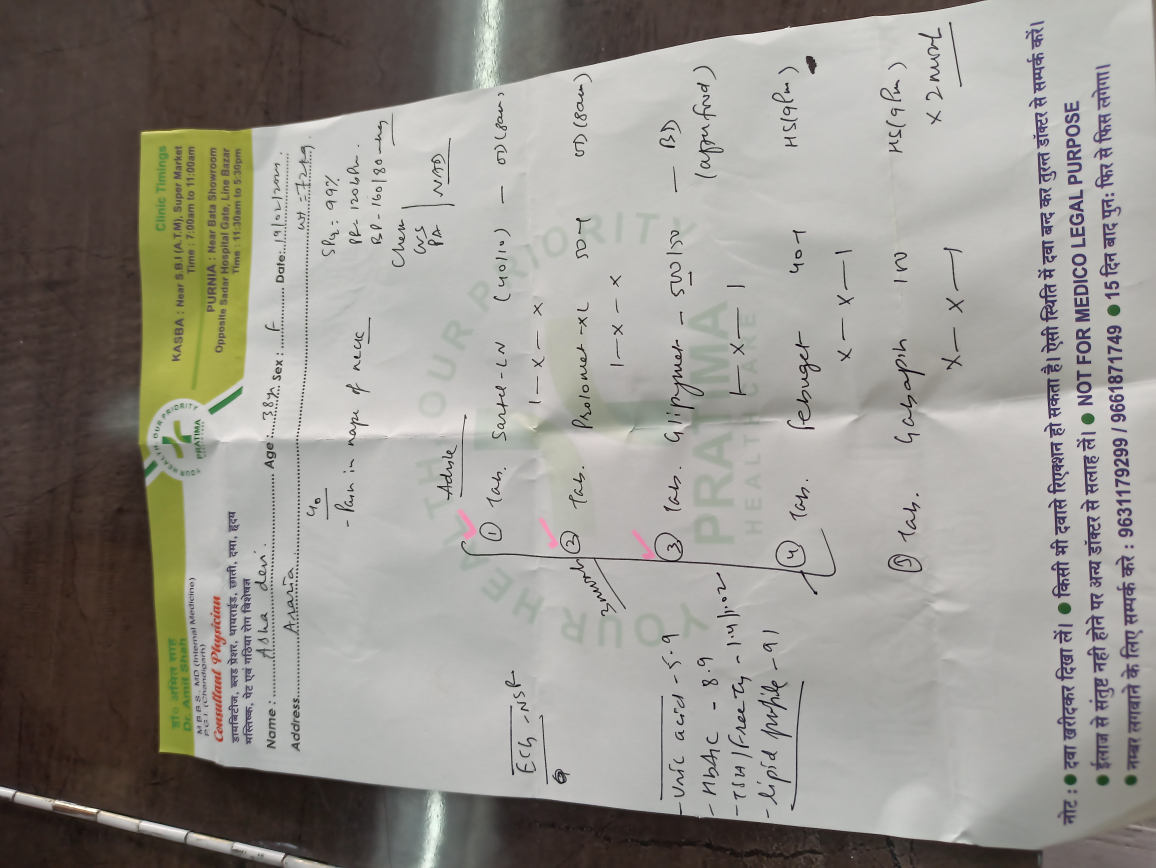 डा० अमित साह
Dr. Amit Shah
M.B.B.S., MD (Internal Medicine)
P.G.I (Chandigarh)
Consultant Physician
डायबिटीज, ब्लड प्रेशर, थायराईड, छाती, दमा, हृदय
मस्तिष्क, पेट एवं गठिया रोग विशेषज्ञ
YOUR HEALTH OUR PRIORITY
PRATIMA
Clinic Timings
KASBA : Near S.B.I (A.T.M), Super Market
Time : 7:00am to 11:00am
PURNIA : Near Bata Showroom
Opposite Sadar Hospital Gate, Line Bazar
Time : 11:30am to 5:30pm
Name : Asha devi Age : 38y Sex : F Date: 19/02/
Address Araria Wt = 72kg
C/o
- Pain in nape of neck
SPO2 = 99%
PR - 120bpm
BP - 160/80 mmHg
Chest
CVS
PA
NAD
Advise
① Tab. Sartel-LN (40/10) — OD (8am)
1 — x — x
② Tab. Prolomet-XL 50 - 1 OD (8am)
1 — x — x
③ Tab. Glipymet - 500/50 — BD
1 — x — 1 (after food)
④ Tab. Febuget 40 - 1 HS (9Pm)
x — x — 1
Tab. Gabapin HS (9Pm)
x — x — 1 x 2
3month
ECG - NSR
- Uric acid - 5.9
- HbA1c - 8.9
- TSH/Free T4 - 1.41/1.02
- lipid profile - 91
YOUR HEALTH OUR PRIORITY
PRATIMA
HEALTH CARE
नोट : ● दवा खरीदकर दिखा लें। ● किसी भी दवासे रिएक्शन हो सकता है। ऐसी स्थिति में दवा बन्द कर तुरन्त डॉक्टर से सम्पर्क करें।
● ईलाज से संतुष्ट नही होने पर अन्य डॉक्टर से सलाह लें। ● NOT FOR MEDICO LEGAL PURPOSE
● नम्बर लगवाने के लिए सम्पर्क करे : 9631179299 / 9661871749 ● 15 दिन बाद पुन: फिर से फिस लगेगा।